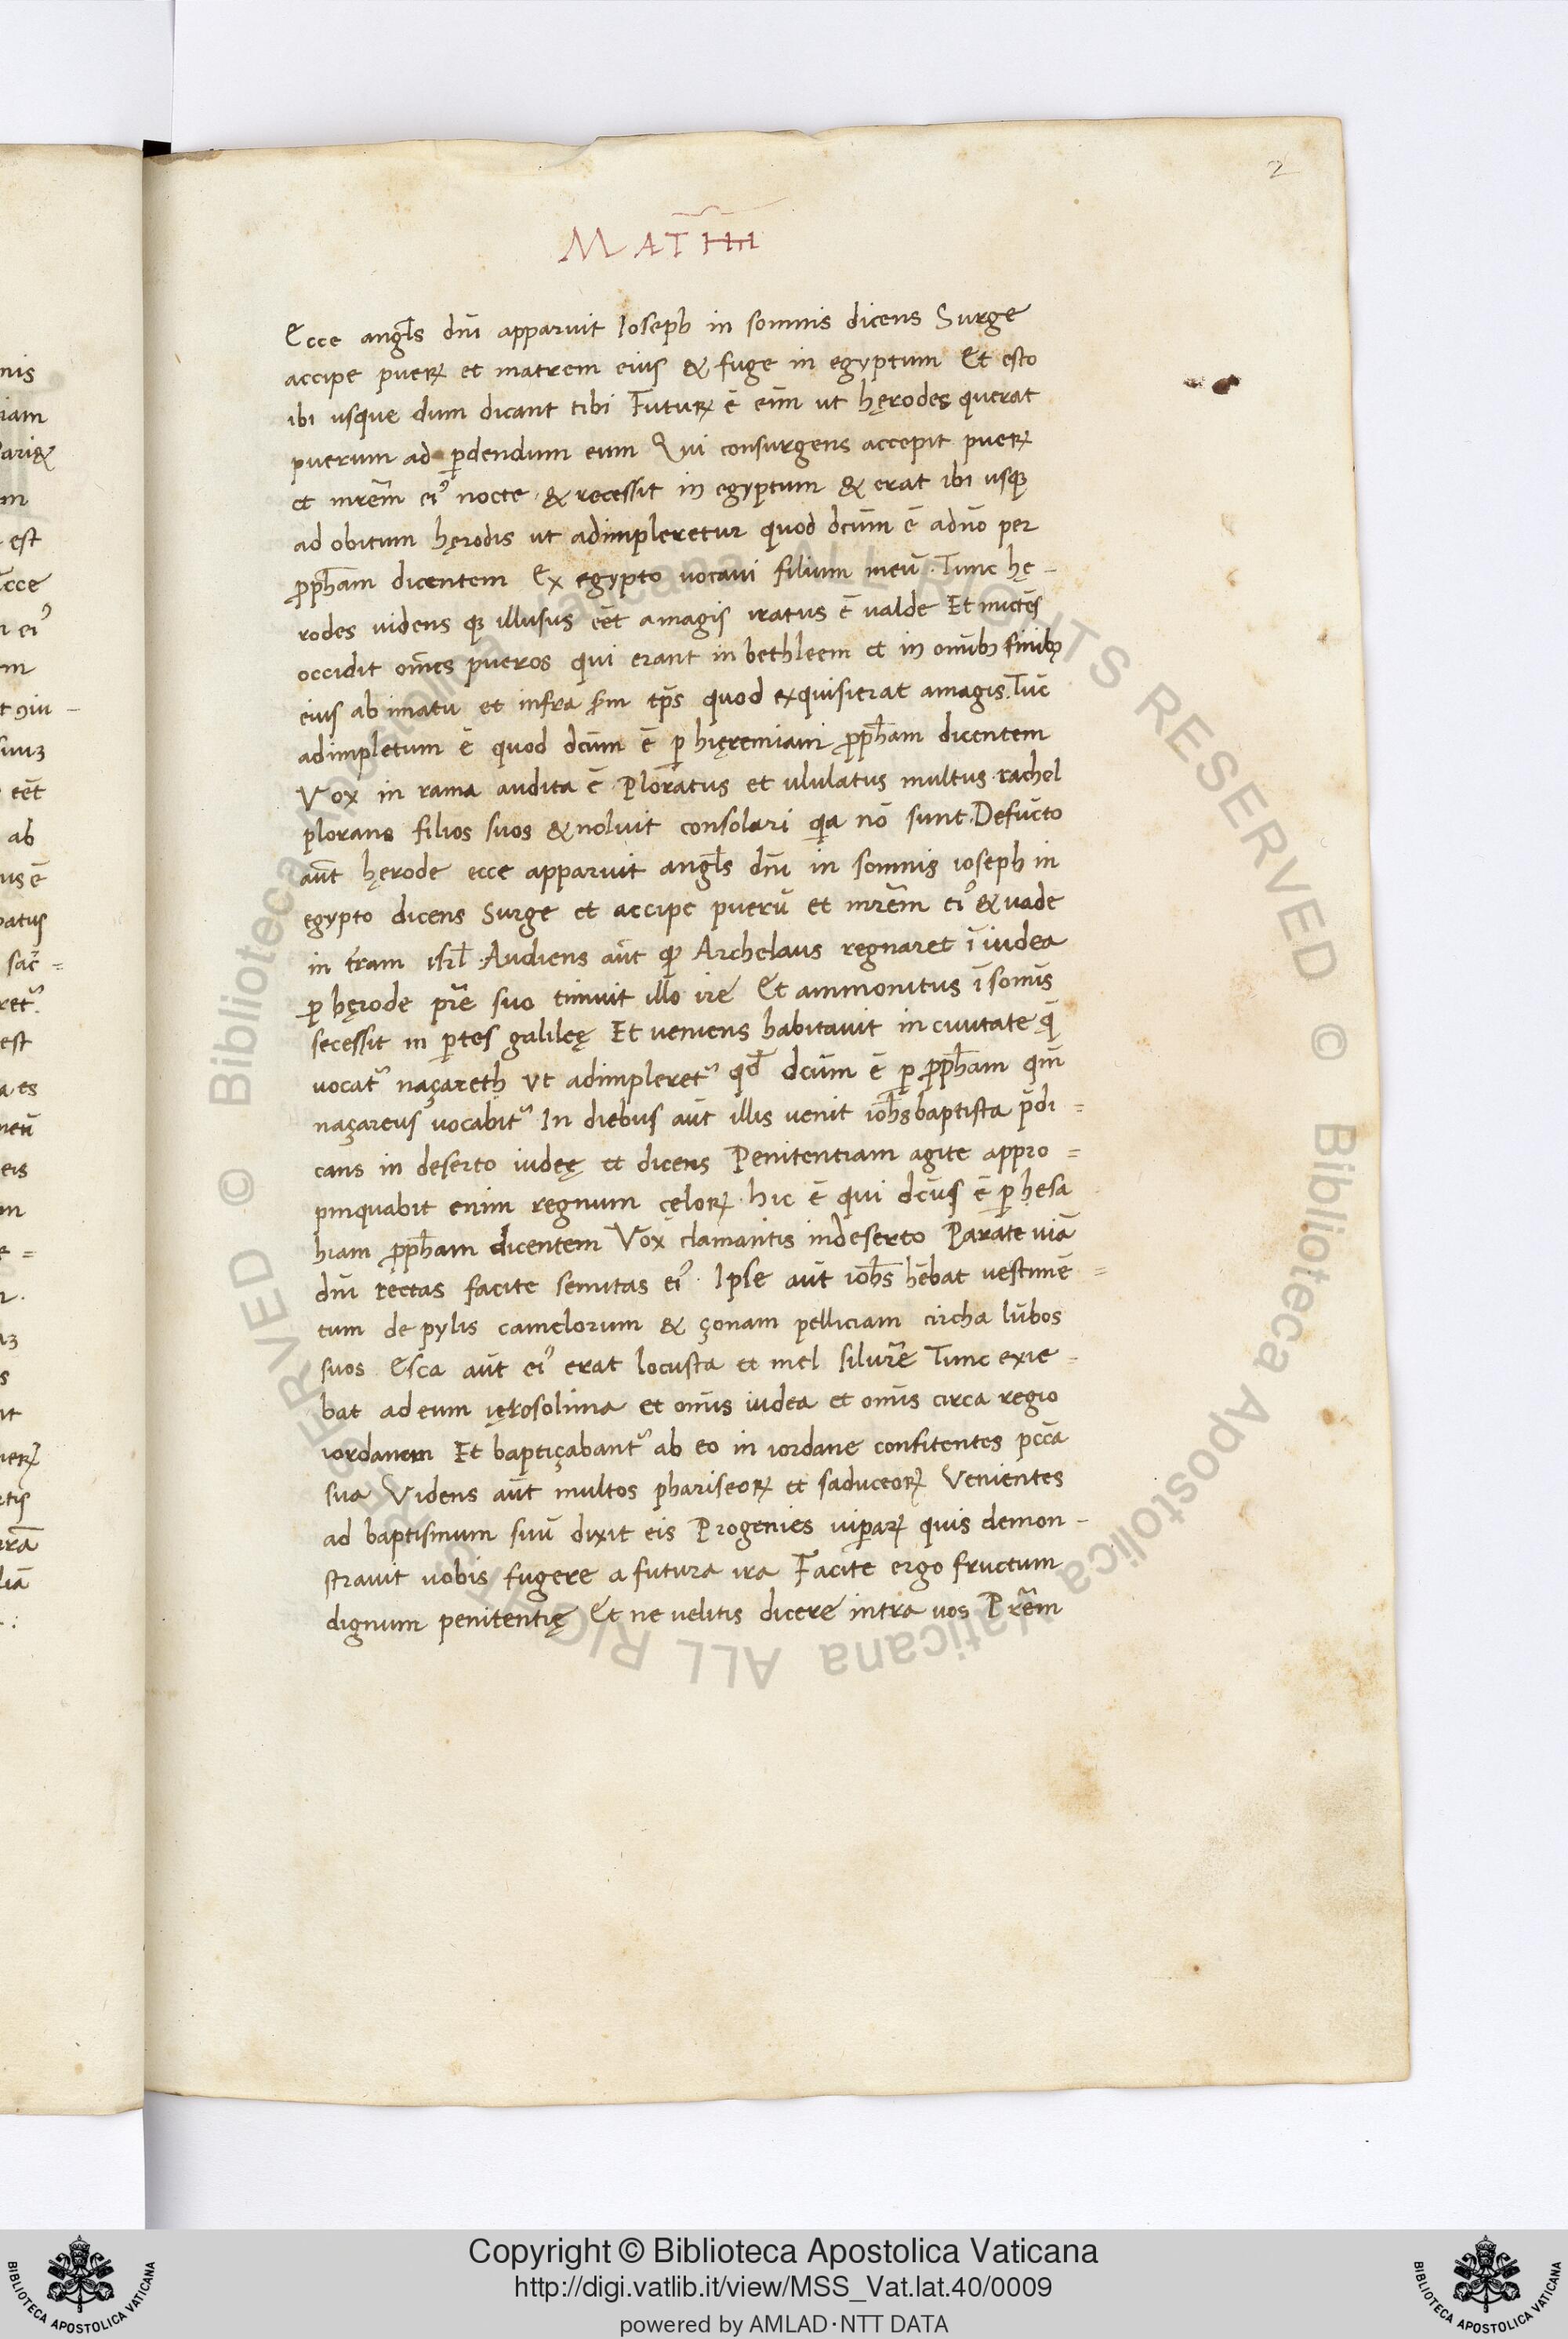 2
MATH
Ecce angl̄s dn̄i apparuit Ioseph in somnis dicens Surge
accipe pueꝝ et matrem eius & fuge in egyptum Et esto
ibi usque dum dicant tibi Futuꝝ ē eīm ut hęrodes querat
puerum ad ꝑdendum eum Qui consurgens accepit pueꝝ
et mr̄em ei⁹ nocte & recessit in egyptum & erat ibi usqꝫ
ad obitum hęrodis ut adimpleretur quod dc̄um ē adn̄o per
ꝓph̄am dicentem Ex egypto uocaui filium meū. Tunc hę-
rodes uidens qꝫ illusus eēt amagis iratus ē ualde Et mictēs
occidit om̄es pueros qui erant in bethleem et in om̄ibꝫ finibꝫ
eius ab imatu et infra sm̄ tp̄s quod exquisierat amagis. Tūc
adimpletum ē quod dc̄um ē ꝑ hięremiam ꝓph̄am dicentem
Vox in rama audita ē Ploratus et ululatus multus. rachel
plorans filios suos & noluit consolari qia nō sunt. Defūcto
aūt hęrode ecce apparuit angl̄s dn̄i in somnis ioseph in
egypto dicens Surge et accipe puerū et mr̄em ei⁹ & uade
in tr̄am isrl̄. Audiens aūt qꝫ Archelaus regnaret ī iudea
ꝑ hęrode pr̄e suo timuit illo ire Et ammonitus ī somn̄s
secessit in ꝑtes galileę Et ueniens habitauit in ciuitate q̄
uocat⁹ naçareth ut adimpleret⁹ qd̄ dc̄um ē ꝑ ꝓph̄am qm̄
naçareus uocabit⁹ In diebus aūt illis uenit ioh̄s baptista p̄di=
cans in deserto iudeę et dicens Penitentiam agite appro=
pinquabit enim regnum cęloꝝ. hic ē qui dc̄us ē ꝑ hesa
hiam ꝓph̄am dicentem Vox clamantis indeserto Parate uiā
dn̄i rectas facite semitas ei⁹. Ipse aūt ioh̄s hēbat uestimē=
tum de pylis camelorum & çonam pelliciam circha lūbos
suos Esca aūt ei⁹ erat locusta et mel silur̄e Tunc exie=
bat ad eum ięrosolima et om̄is iudea et om̄is circa regio
iordanem Et baptiçabant⁹ ab eo in iordane confitentes pc̄c̄a
sua Videns aūt multos phariseoꝝ et saduceoꝝ Venientes
ad baptismum suū dixit eis Progenies uiꝑaꝝ quis demon-
strauit uobis fugere a futura ira Facite ergo fructum
dignum penitentię Et ne uelitis dicere intra uos Pr̄em
nis
iam
m
est
ei⁹
m
eēt
ab
us ē
sac̄=
est
a es
eis
Copyright © Biblioteca Apostolica Vaticana
http://digi.vatlib.it/view/MSS_Vat.lat.40/0009
powered by AMLAD·NTT DATA
BIBLIOTECA APOSTOLICA VATICANA
BIBLIOTECA APOSTOLICA VATICANA
© Biblioteca Apostolica Vaticana ALL RIGHTS RESERVED © Biblioteca Apostolica Vaticana ALL RIGHTS RESERVED